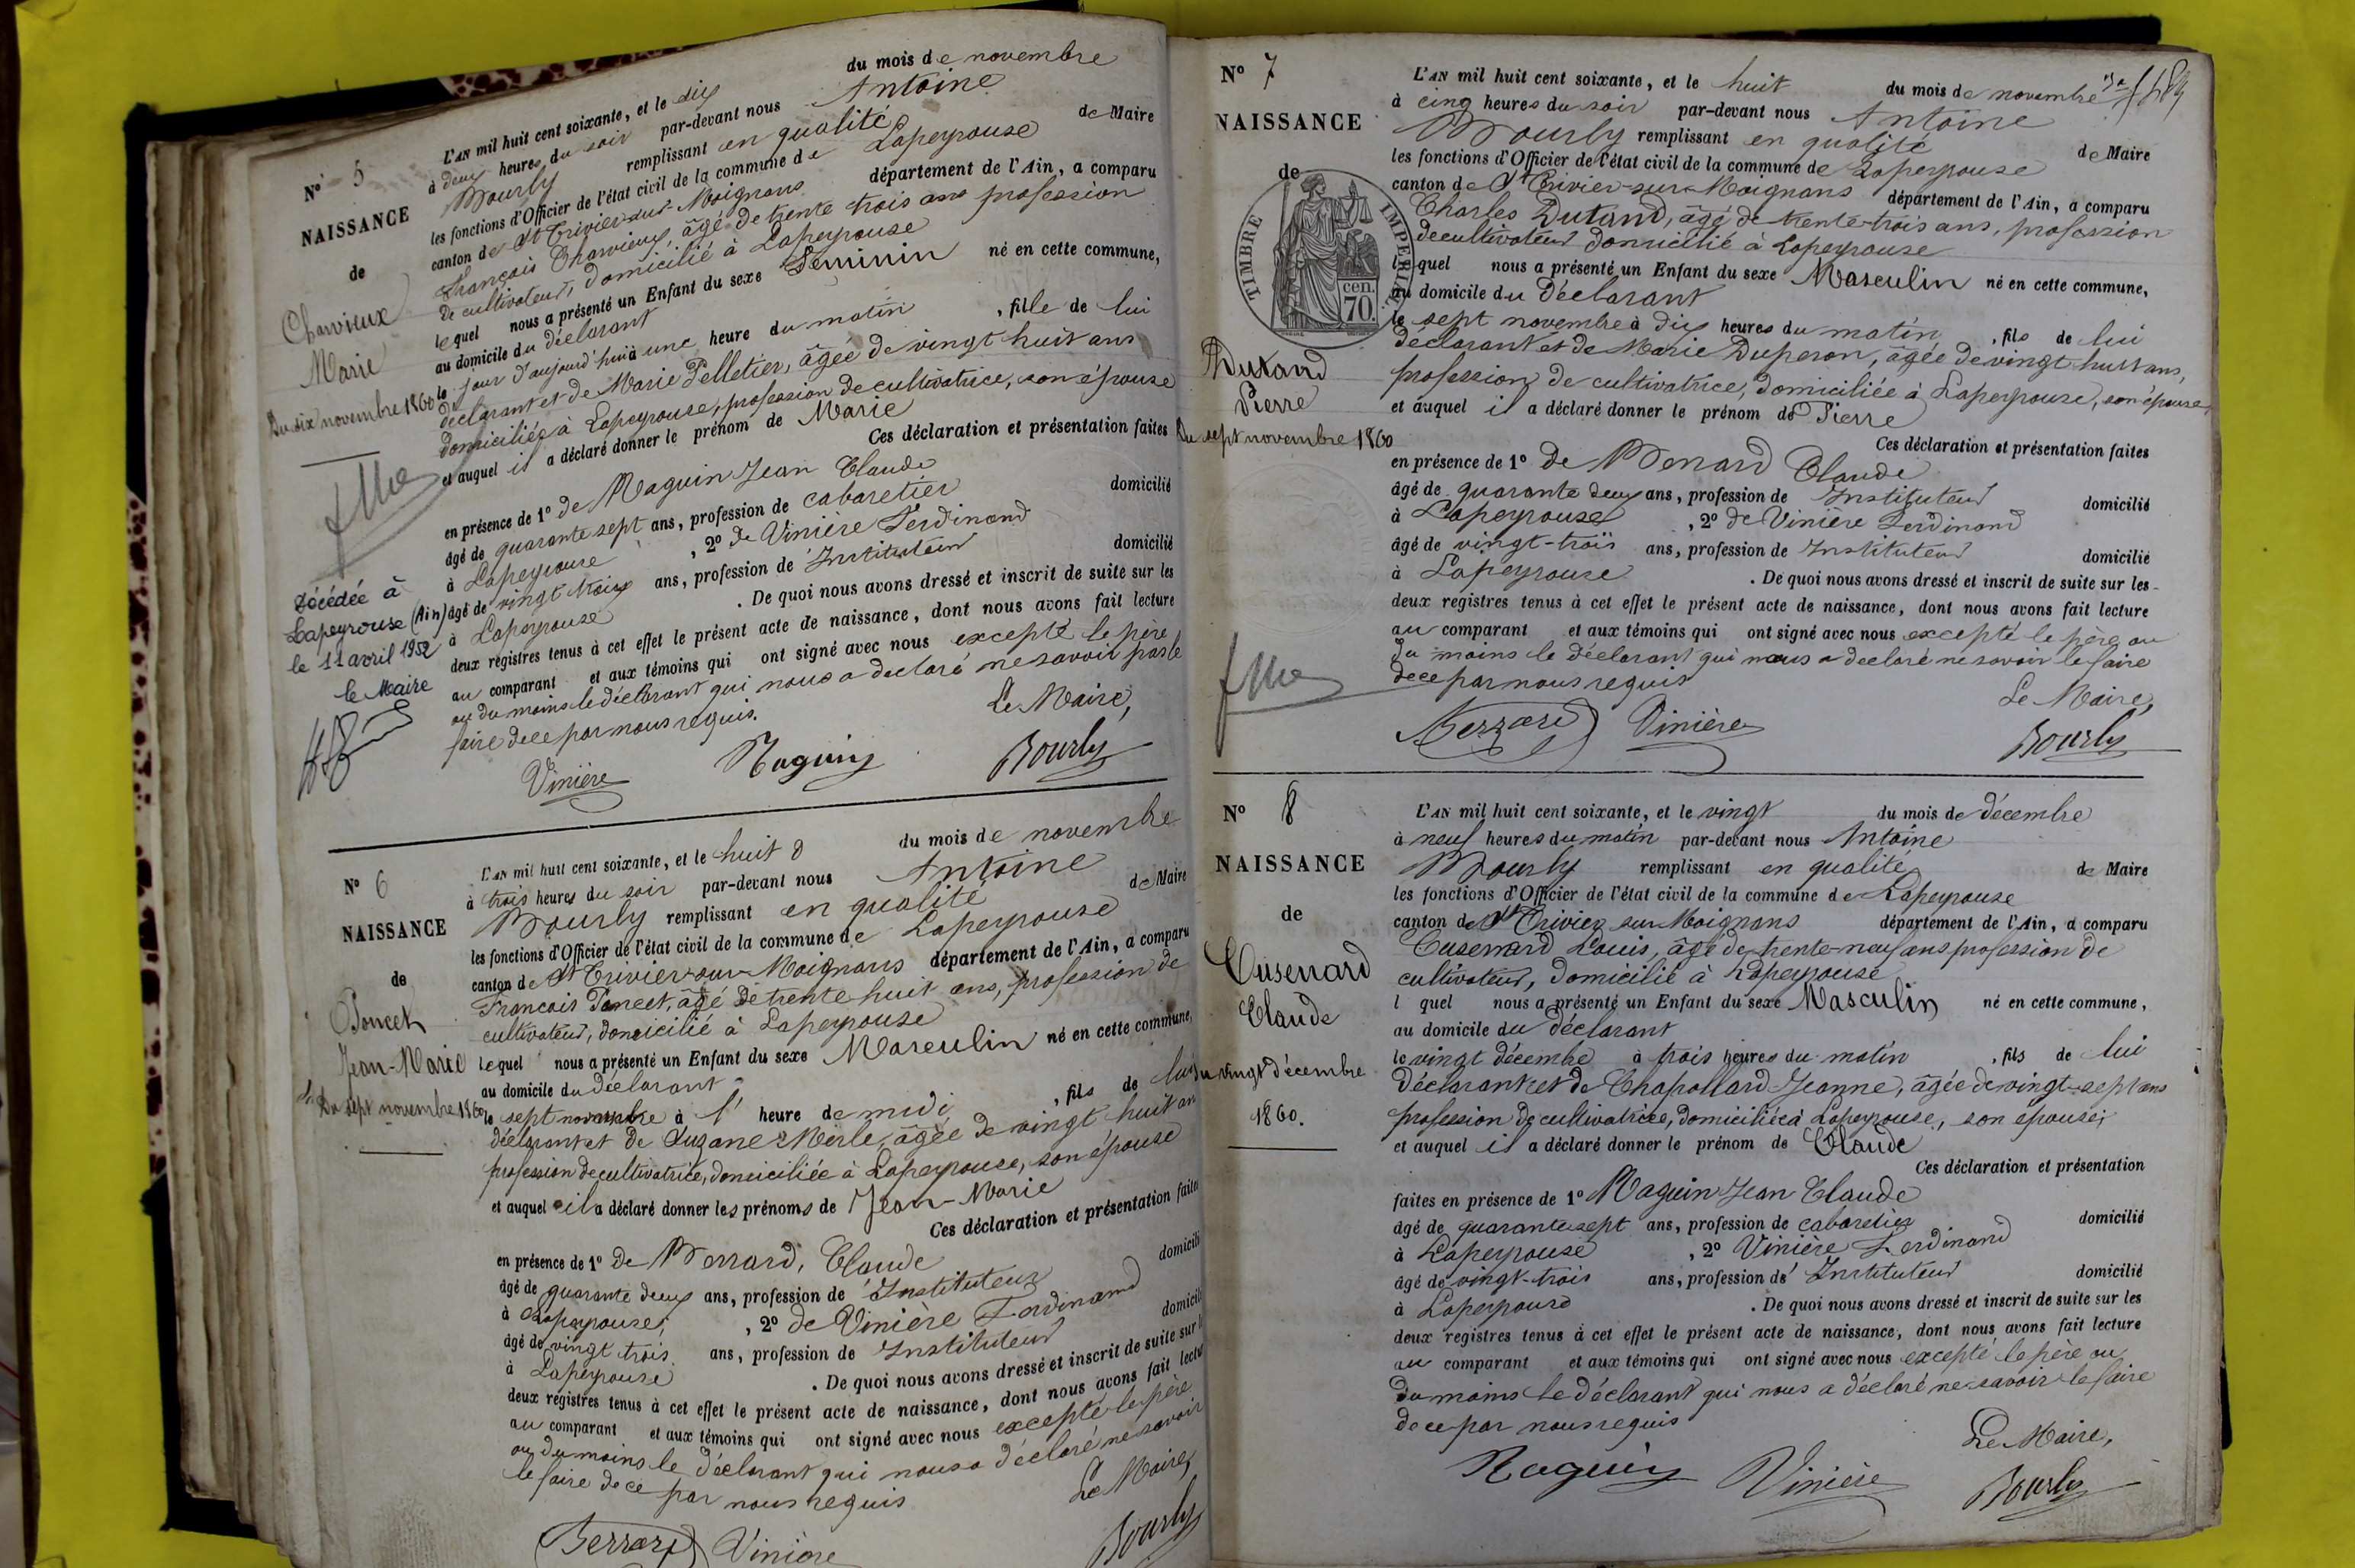 N° 5
NAISSANCE
de
Charvieux
Marie
Du six novembre 1860
Décédée à
Lapeyrouse (Ain)
le 11 avril 1952
le Maire
L'AN mil huit cent soixante, et le dix du mois de novembre
à deux heures du soir par-devant nous Antoine
Bourly remplissant en qualité de Maire
les fonctions d'Officier de l'état civil de la commune de Lapeyrouse
canton de St Trivier-sur-Moignans département de l'Ain, a comparu
François Charvieux, âgé de trente trois ans profession
de cultivateur, domicilié à Lapeyrouse
lequel nous a présenté un Enfant du sexe Féminin né en cette commune,
au domicile du déclarant
le jour d'aujourd'hui à une heure du matin, fille de lui
déclarant et de Marie Pelletier, âgée de vingt huit ans
domiciliée à Lapeyrouse, profession de cultivatrice, son épouse
et auquel il a déclaré donner le prénom de Marie
Ces déclaration et présentation faites
en présence de 1° de Raguin Jean Claude
âgé de quarante sept ans, profession de cabaretier domicilié
à Lapeyrouse, 2° de Vinière Ferdinand
âgé de vingt trois ans, profession de Instituteur domicilié
à Lapeyrouse. De quoi nous avons dressé et inscrit de suite sur les
deux registres tenus à cet effet le présent acte de naissance, dont nous avons fait lecture
au comparant et aux témoins qui ont signé avec nous excepté le père
ou du moins le déclarant qui nous a déclaré ne savoir pas le
faire de ce par nous requis.
Le Maire,
Vinière Raguin Bourly
N° 6
NAISSANCE
de
Poncet
Jean-Marie
Du sept novembre 1860
L'AN mil huit cent soixante, et le huit du mois de novembre
à trois heures du soir par-devant nous Antoine
Bourly remplissant en qualité de Maire
les fonctions d'Officier de l'état civil de la commune de Lapeyrouse
canton de St Trivier-sur-Moignans département de l'Ain, a comparu
François Poncet, âgé de trente huit ans, profession de
cultivateur, domicilié à Lapeyrouse
lequel nous a présenté un Enfant du sexe Masculin né en cette commune,
au domicile du déclarant
le sept novembre à l' heure de midi, fils de lui
déclarant et de Suzane Merle, âgée de vingt huit an
profession de cultivatrice, domiciliée à Lapeyrouse, son épouse
et auquel il a déclaré donner les prénoms de Jean-Marie
Ces déclaration et présentation faites
en présence de 1° de Berrard, Claude
âgé de quarante deux ans, profession de Instituteur domicilié
à Lapeyrouse, 2° de Vinière Ferdinand
âgé de vingt trois ans, profession de Instituteur domicilié
à Lapeyrouse. De quoi nous avons dressé et inscrit de suite sur l
deux registres tenus à cet effet le présent acte de naissance, dont nous avons fait lectu
au comparant et aux témoins qui ont signé avec nous excepté le père
ou du moins le déclarant qui nous a déclaré ne savoir
le faire de ce par nous requis
Le Maire,
Berrard Vinière Bourly
N° 7
NAISSANCE
de
TIMBRE IMPERIAL
70 cen.
Dutand
Pierre
Du sept novembre 1860
L'AN mil huit cent soixante, et le huit du mois de novembre
à cinq heures du soir par-devant nous Antoine
Bourly remplissant en qualité de Maire
les fonctions d'Officier de l'état civil de la commune de Lapeyrouse
canton de St Trivier-sur-Moignans département de l'Ain, a comparu
Charles Dutand, âgé de trente-trois ans, profession
de cultivateur domicilié à Lapeyrouse
lequel nous a présenté un Enfant du sexe Masculin né en cette commune,
au domicile du Déclarant
le sept novembre à dix heures du matin, fils de lui
déclarant et de Marie Duperon, âgée de vingt huit ans,
profession de cultivatrice, domiciliée à Lapeyrouse, son épouse,
et auquel il a déclaré donner le prénom de Pierre
Ces déclaration et présentation faites
en présence de 1° de Berrard Claude
âgé de quarante deux ans, profession de Instituteur domicilié
à Lapeyrouse, 2° de Vinière Ferdinand
âgé de vingt-trois ans, profession de Instituteur domicilié
à Lapeyrouse. De quoi nous avons dressé et inscrit de suite sur les
deux registres tenus à cet effet le présent acte de naissance, dont nous avons fait lecture
au comparant et aux témoins qui ont signé avec nous excepté le père ou
du moins le déclarant qui nous a déclaré ne savoir le faire
de ce par nous requis
Le Maire,
Berrard Vinière Bourly
N° 8
NAISSANCE
de
Cusenard
Claude
Du vingt décembre
1860.
L'AN mil huit cent soixante, et le vingt du mois de décembre
à neuf heures du matin par-devant nous Antoine
Bourly remplissant en qualité de Maire
les fonctions d'Officier de l'état civil de la commune de Lapeyrouse
canton de St Trivier sur Moignans département de l'Ain, a comparu
Cusenard Louis, âgé de trente-neuf ans profession de
cultivateur, domicilié à Lapeyrouse
l quel nous a présenté un Enfant du sexe Masculin né en cette commune,
au domicile du déclarant
le vingt décembre à trois heures du matin, fils de lui
Déclarant et de Chapollard Jeanne, âgée de vingt-sept ans
profession de cultivatrice, domiciliée à Lapeyrouse, son épouse;
et auquel il a déclaré donner le prénom de Claude
Ces déclaration et présentation
faites en présence de 1° Raguin Jean Claude
âgé de quarante sept ans, profession de cabaretier domicilié
à Lapeyrouse, 2° Vinière Ferdinand
âgé de vingt-trois ans, profession de Instituteur domicilié
à Lapeyrouse. De quoi nous avons dressé et inscrit de suite sur les
deux registres tenus à cet effet le présent acte de naissance, dont nous avons fait lecture
au comparant et aux témoins qui ont signé avec nous excepté le père ou
du moins le déclarant qui nous a déclaré ne savoir le faire
de ce par nous requis
Le Maire,
Raguin Vinière Bourly